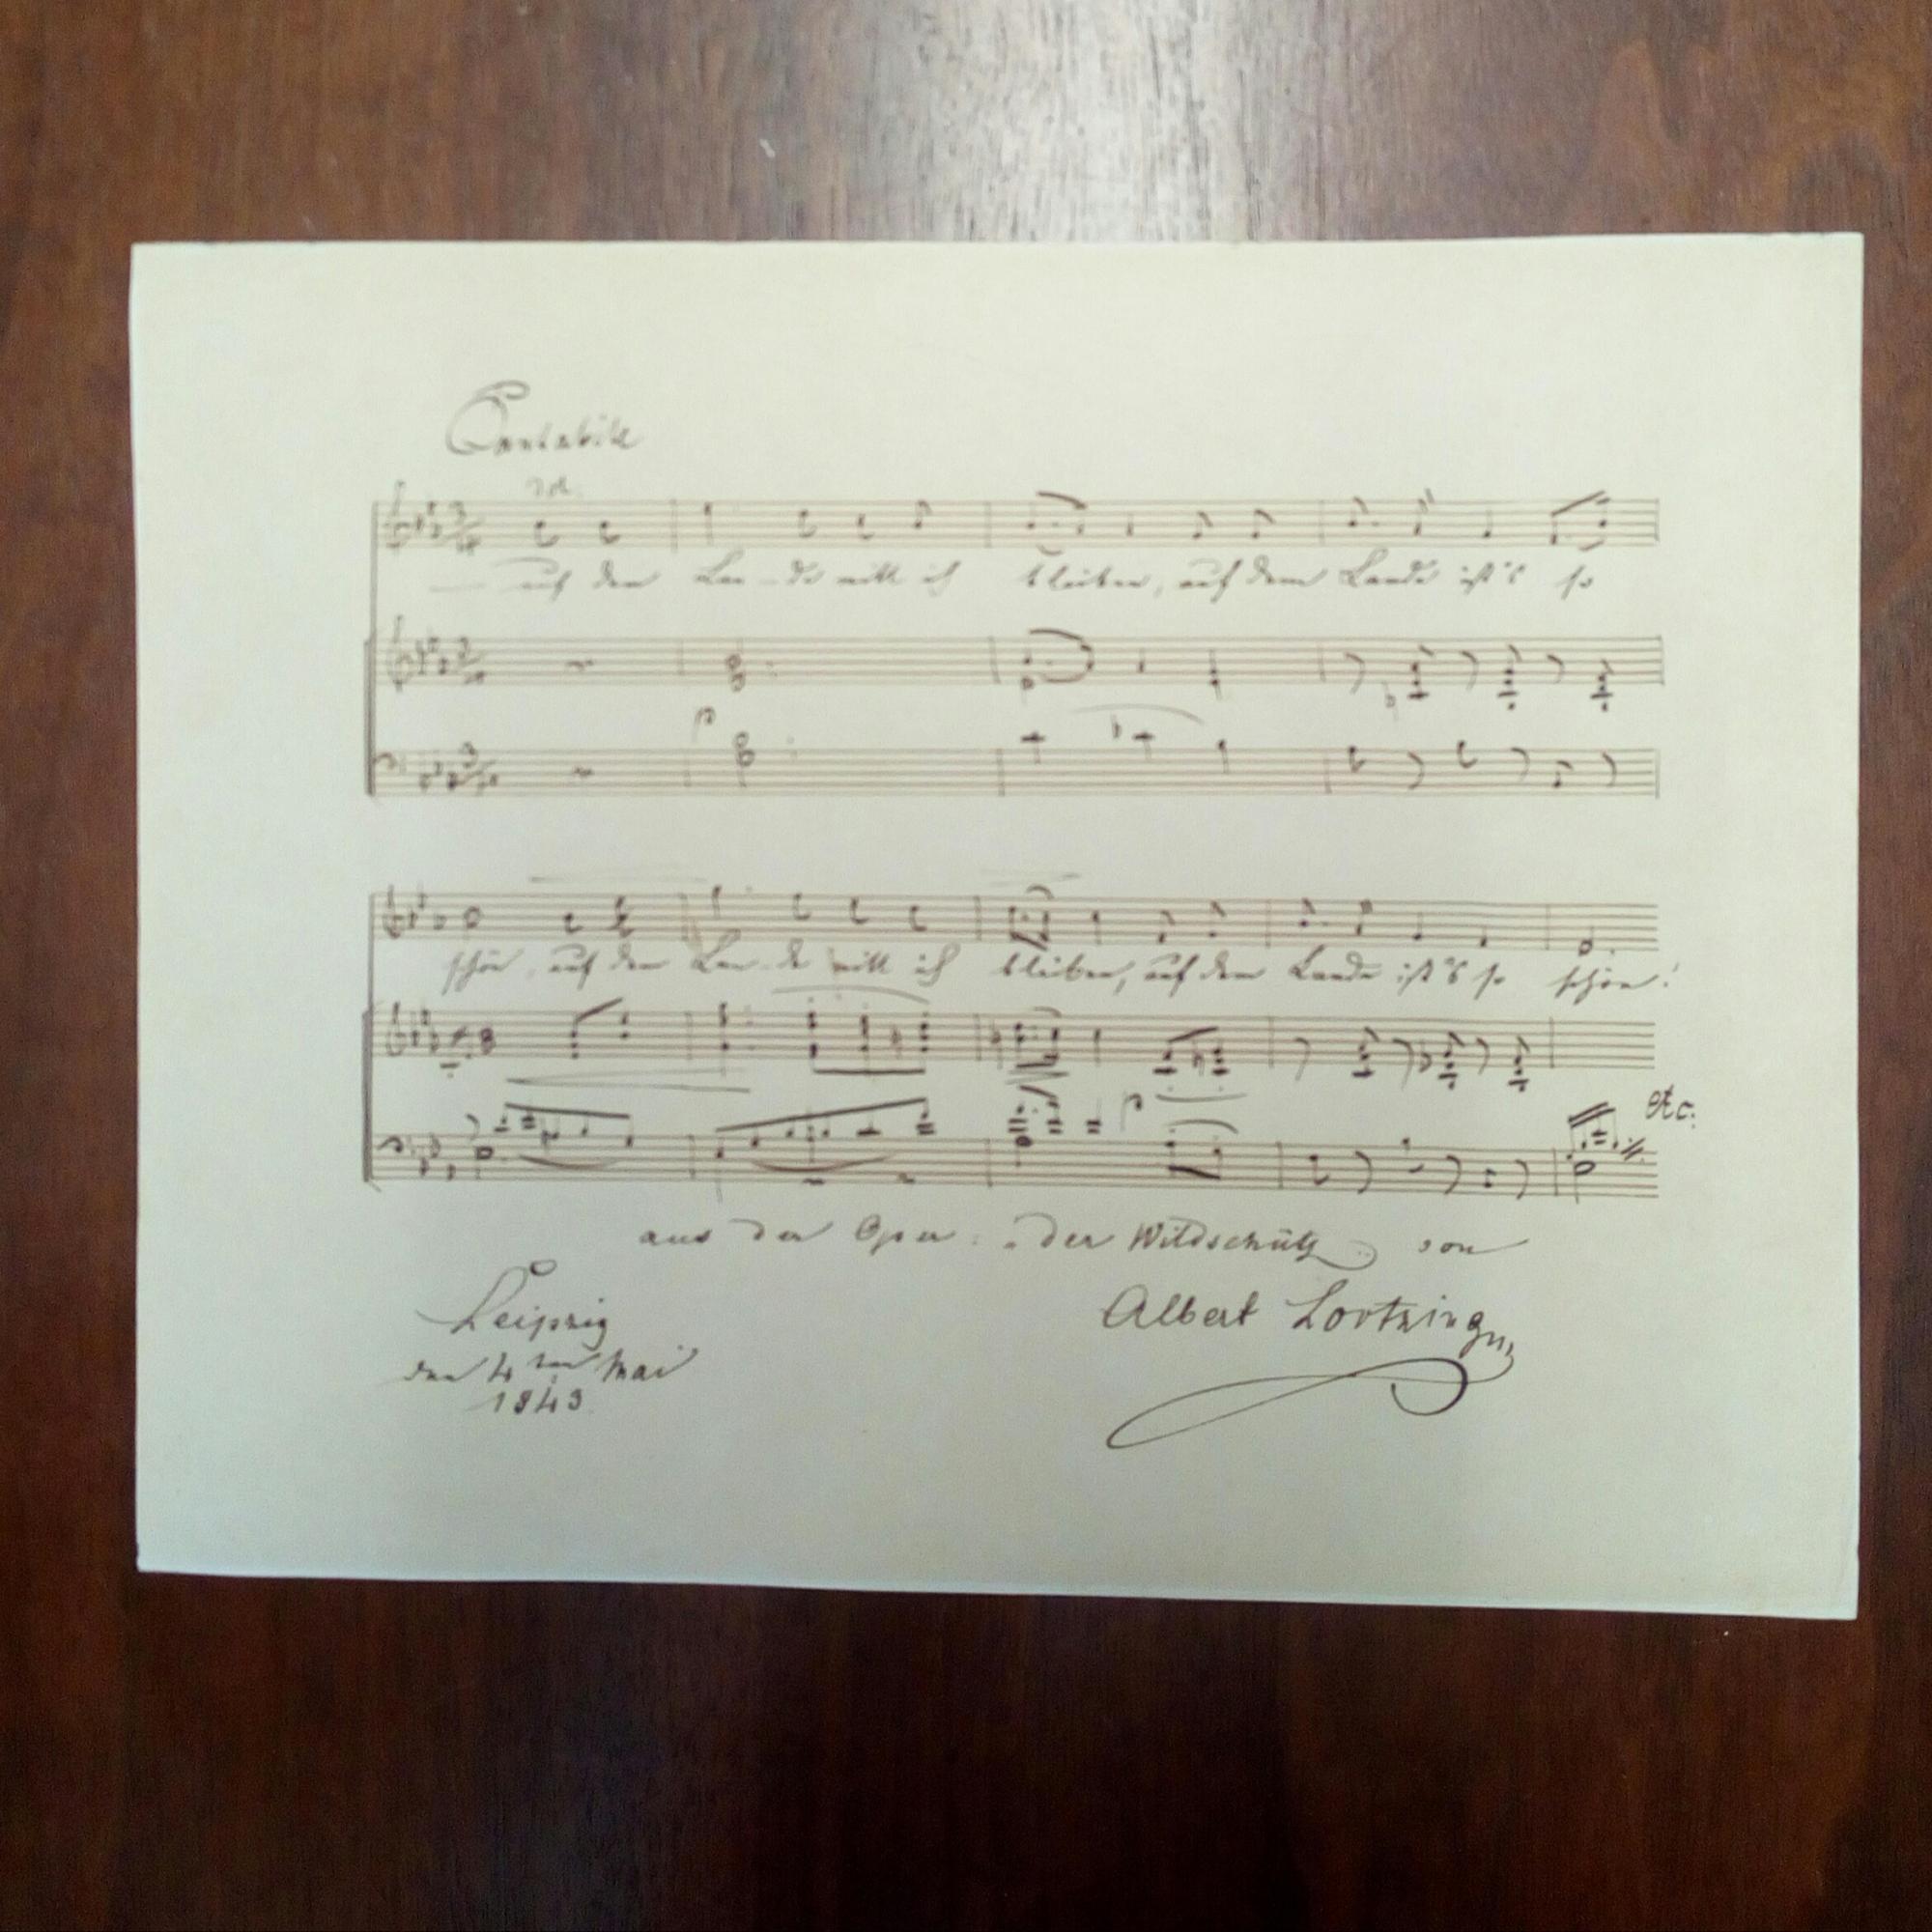 Cantabile
auf dem Lan-de will ich bleiben, auf dem Lande ist's so
p
schön, auf dem Lan-de will ich bleiben, auf dem Lande ist's so schön!
p
etc:
aus der Oper: "der Wildschütz" von
Leipzig
Albert Lortzing
den 4ten Mai
1843.